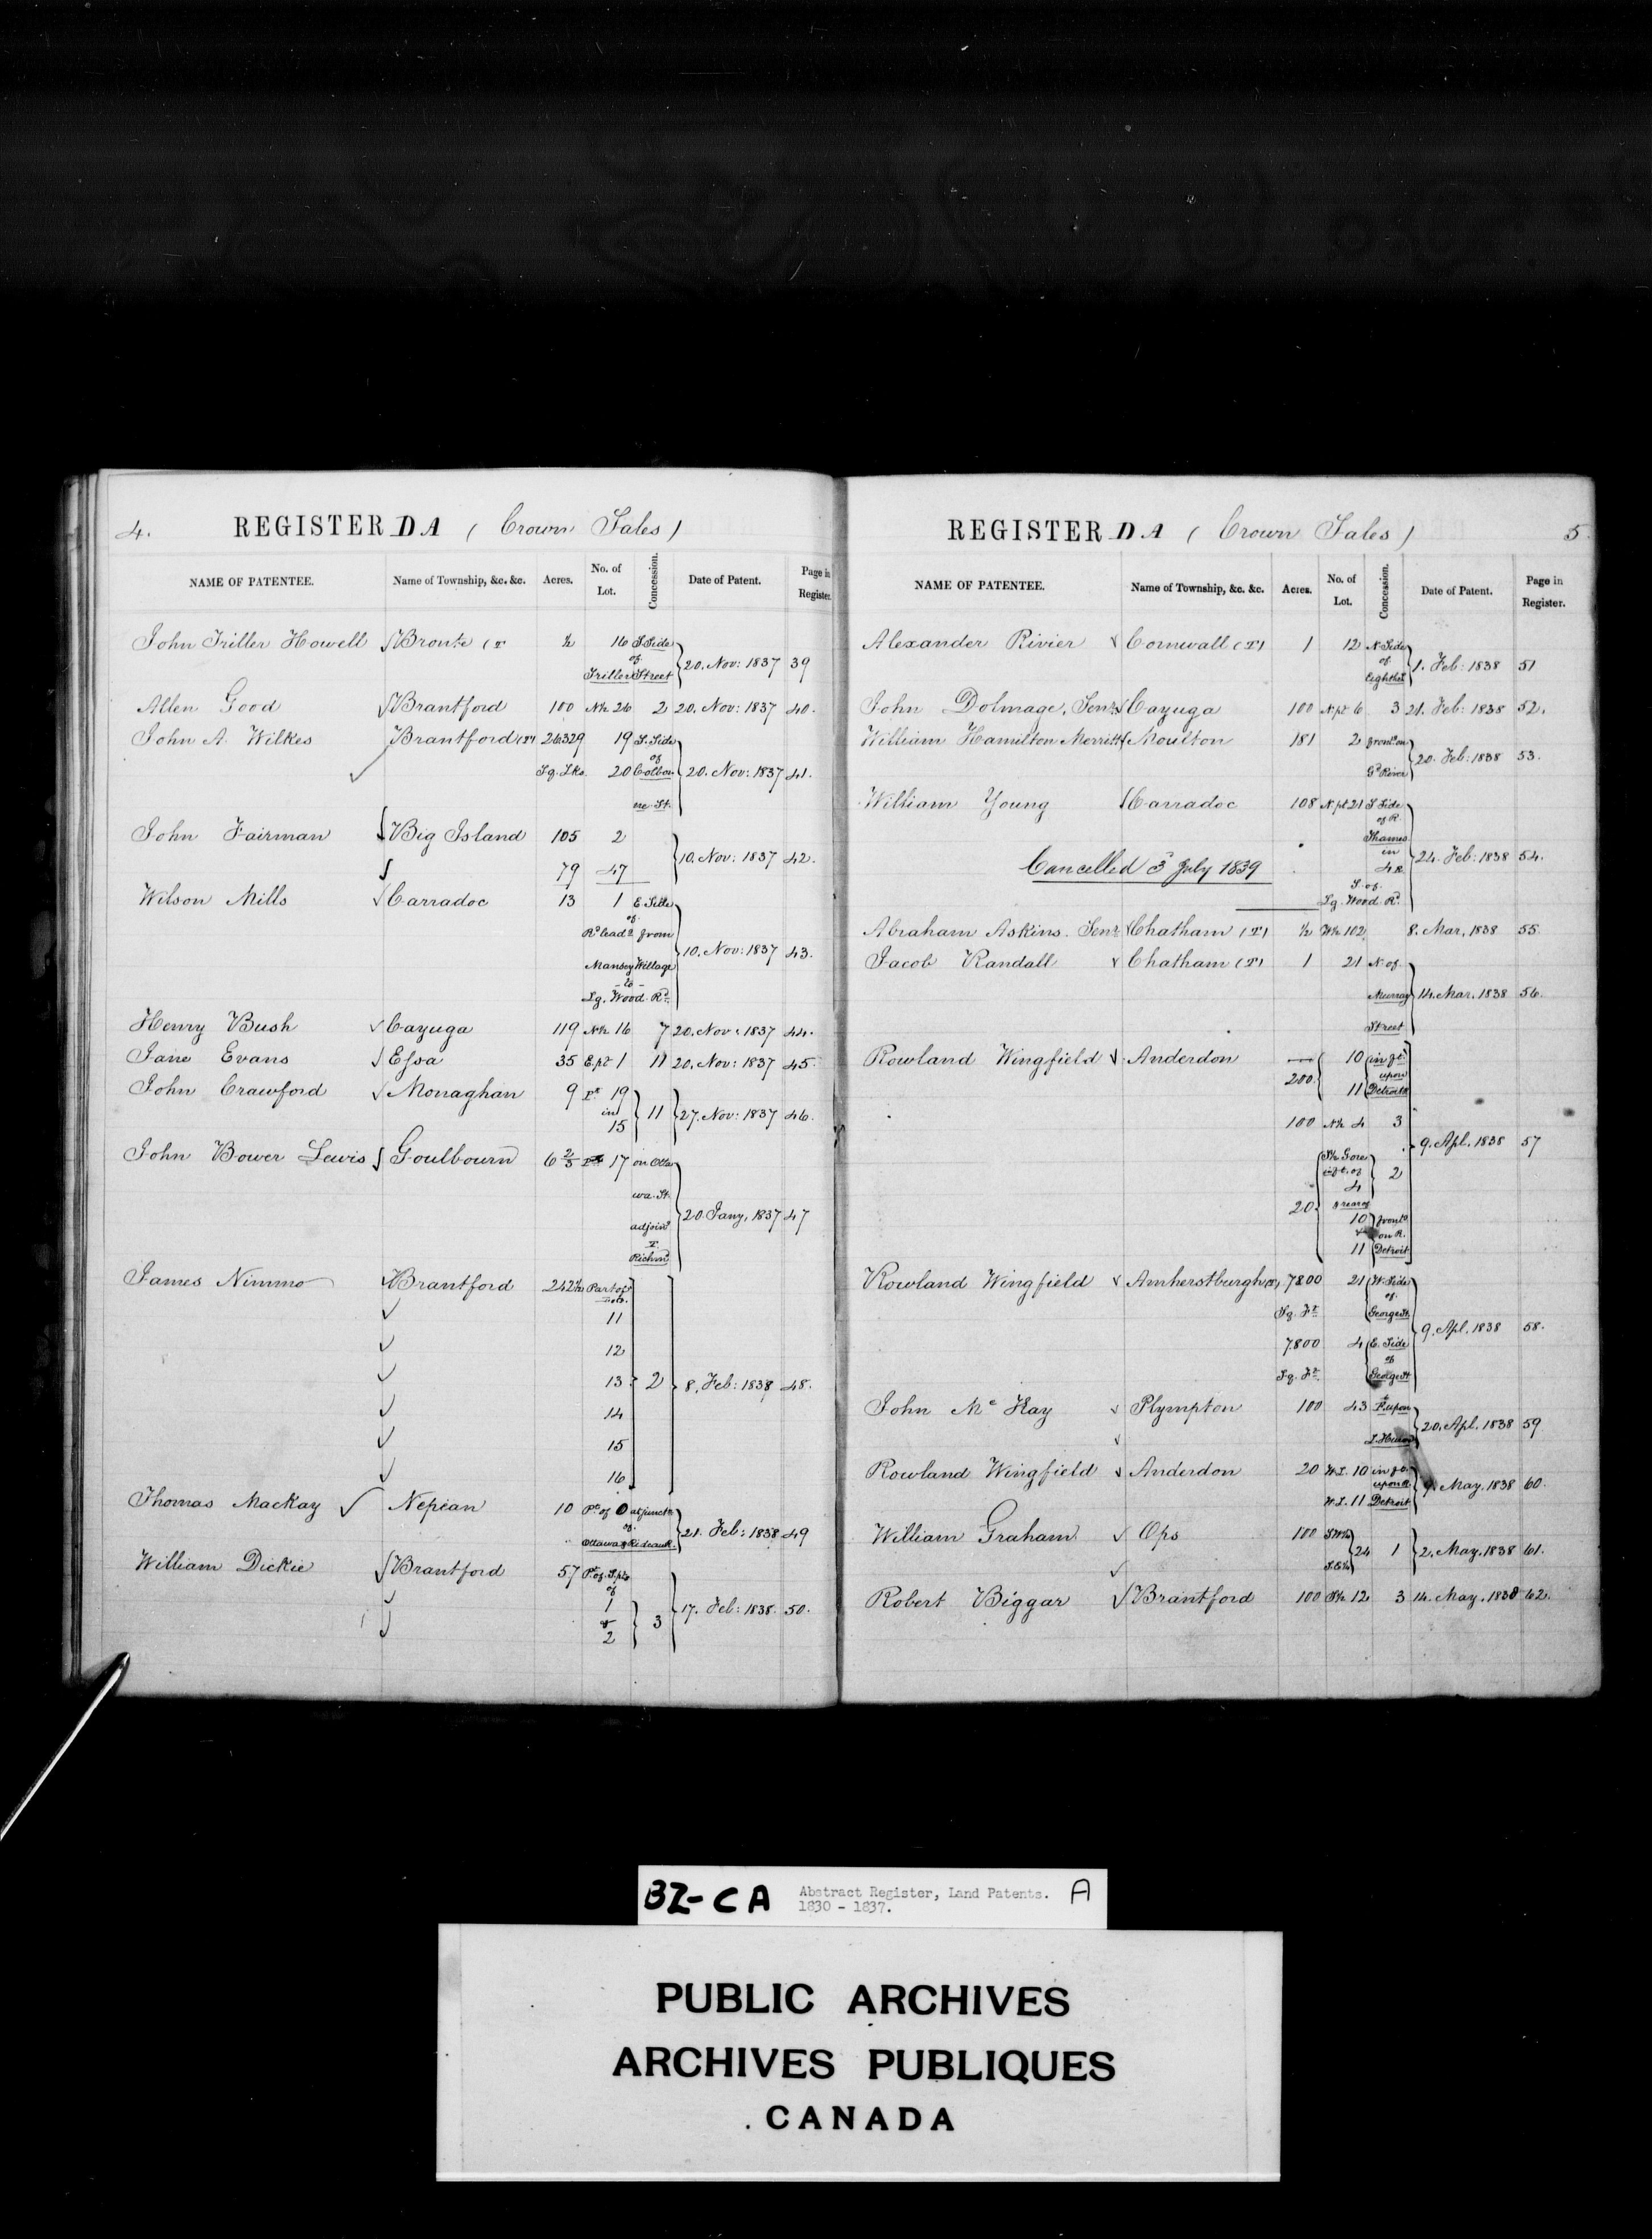 4.
REGISTER DA ( Crown Sales )
NAME OF PATENTEE. Name of Township, &c. &c. Acres. No. of Lot. Concession. Date of Patent. Page in Register.
John Triller Howell Bronte (T ½ 16 S. Side
of 20. Nov: 1837 39
Triller Street
Allen Good Brantford 100 N½ 26 2 20. Nov: 1837 40.
John A. Wilkes Brantford (T) 26329 19 S. Side
of
Sq. Lks. 20 Colbor 20. Nov: 1837 41.
ne St.
John Fairman Big Island 105 2
10. Nov: 1837 42.
79 47
Wilson Mills Carradoc 13 1 E. Side
of
Rd leadg from
10. Nov: 1837 43.
Munsey Village
- to -
Lg. Wood. Rd.
Henry Bush Cayuga 119 N½ 16 7 20. Nov: 1837 44.
Jane Evans Essa 35 E.pt 1 11 20. Nov: 1837 45.
John Crawford Monaghan 9 Pt 19
in 11 27. Nov: 1837 46.
15
John Bower Lewis Goulbourn 6 2/3 17 on Otta
wa. St.
20 Jany, 1837 47
adjoing
T.
Richmd
James Nimmo Brantford 242½ Part of
Lots.
11
12
13 2 8, Feb: 1838 48.
14
15
16
Thomas MacKay Nepean 10 Pt of O at junctn
of 21. Feb: 1838 49
Ottawa & Rideau R.
William Dickie Brantford 57 Pt of S. pts
of
1 3 17. Feb: 1838. 50.
&
2
5
REGISTER DA ( Crown Sales )
NAME OF PATENTEE. Name of Township, &c. &c. Acres. No. of Lot. Concession. Date of Patent. Page in Register.
Alexander Rivier Cornwall (T) 1 12 N. Side
of 1. Feb: 1838 51
Eighth St
John Dolmage, Senr. Cayuga 100 N.pt 6 3 21. Feb: 1838 52.
William Hamilton Merritt Moulton 181 2 front on
20. Feb: 1838 53.
Gd River
William Young Carradoc 108 N.pt 21 S. Side
of R.
Thames
in
Cancelled 3 July 1839 4 R. 24. Feb: 1838 54.
S. of
Lg. Wood. Rd.
Abraham Askins. Senr. Chatham (T) ½ W½ 102 8. Mar. 1838 55.
Jacob Randall Chatham (T) 1 21 N. of
Murray 14. Mar. 1838 56.
Street
Rowland Wingfield Anderdon 10 in ft.
200. upon
11 Detroit R
100 N½ 4 3
9. Apl. 1838 57
Sh. Gore
in ft. of 2
4
& rear of
20 10 front
& on R.
11 Detroit
Rowland Wingfield Amherstburgh (T) 7800 21 W. Side
of
Sq. Ft. George St.
9. Apl. 1838 58.
7800 4 E. Side
of
Sq. Ft. George St
John Mc Kay Plympton 100 43 F. upon
20. Apl. 1838 59
L. Huron
Rowland Wingfield Anderdon 20 W.L. 10 in ft.
upon R. 9. May. 1838 60.
W.L. 11 Detroit
William Graham Ops 100 S.W¼
24 1 2. May. 1838 61.
S.E¼
Robert Biggar Brantford 100 S½ 12 3 14. May. 1838 62.
BZ-CA Abstract Register, Land Patents. A
1830 - 1837.
PUBLIC ARCHIVES
ARCHIVES PUBLIQUES
CANADA